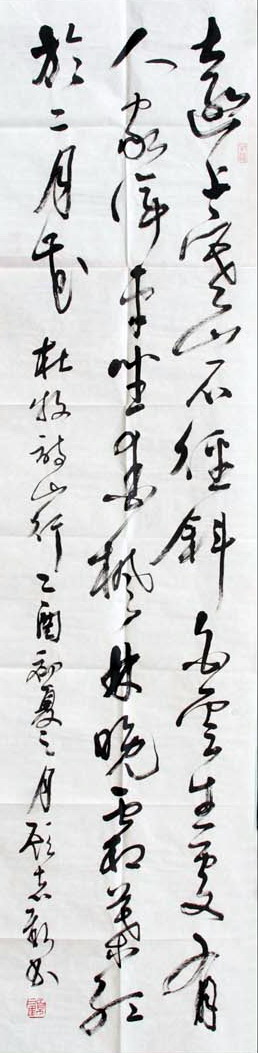 遠上寒山石徑斜白雲生處有
人家停車坐愛楓林晚霜葉紅
於二月花 杜牧詩山行 乙酉初夏之月 志 书